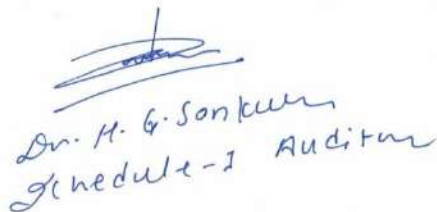 Dr. H. G. Sonkusare
Schedule-I Auditor